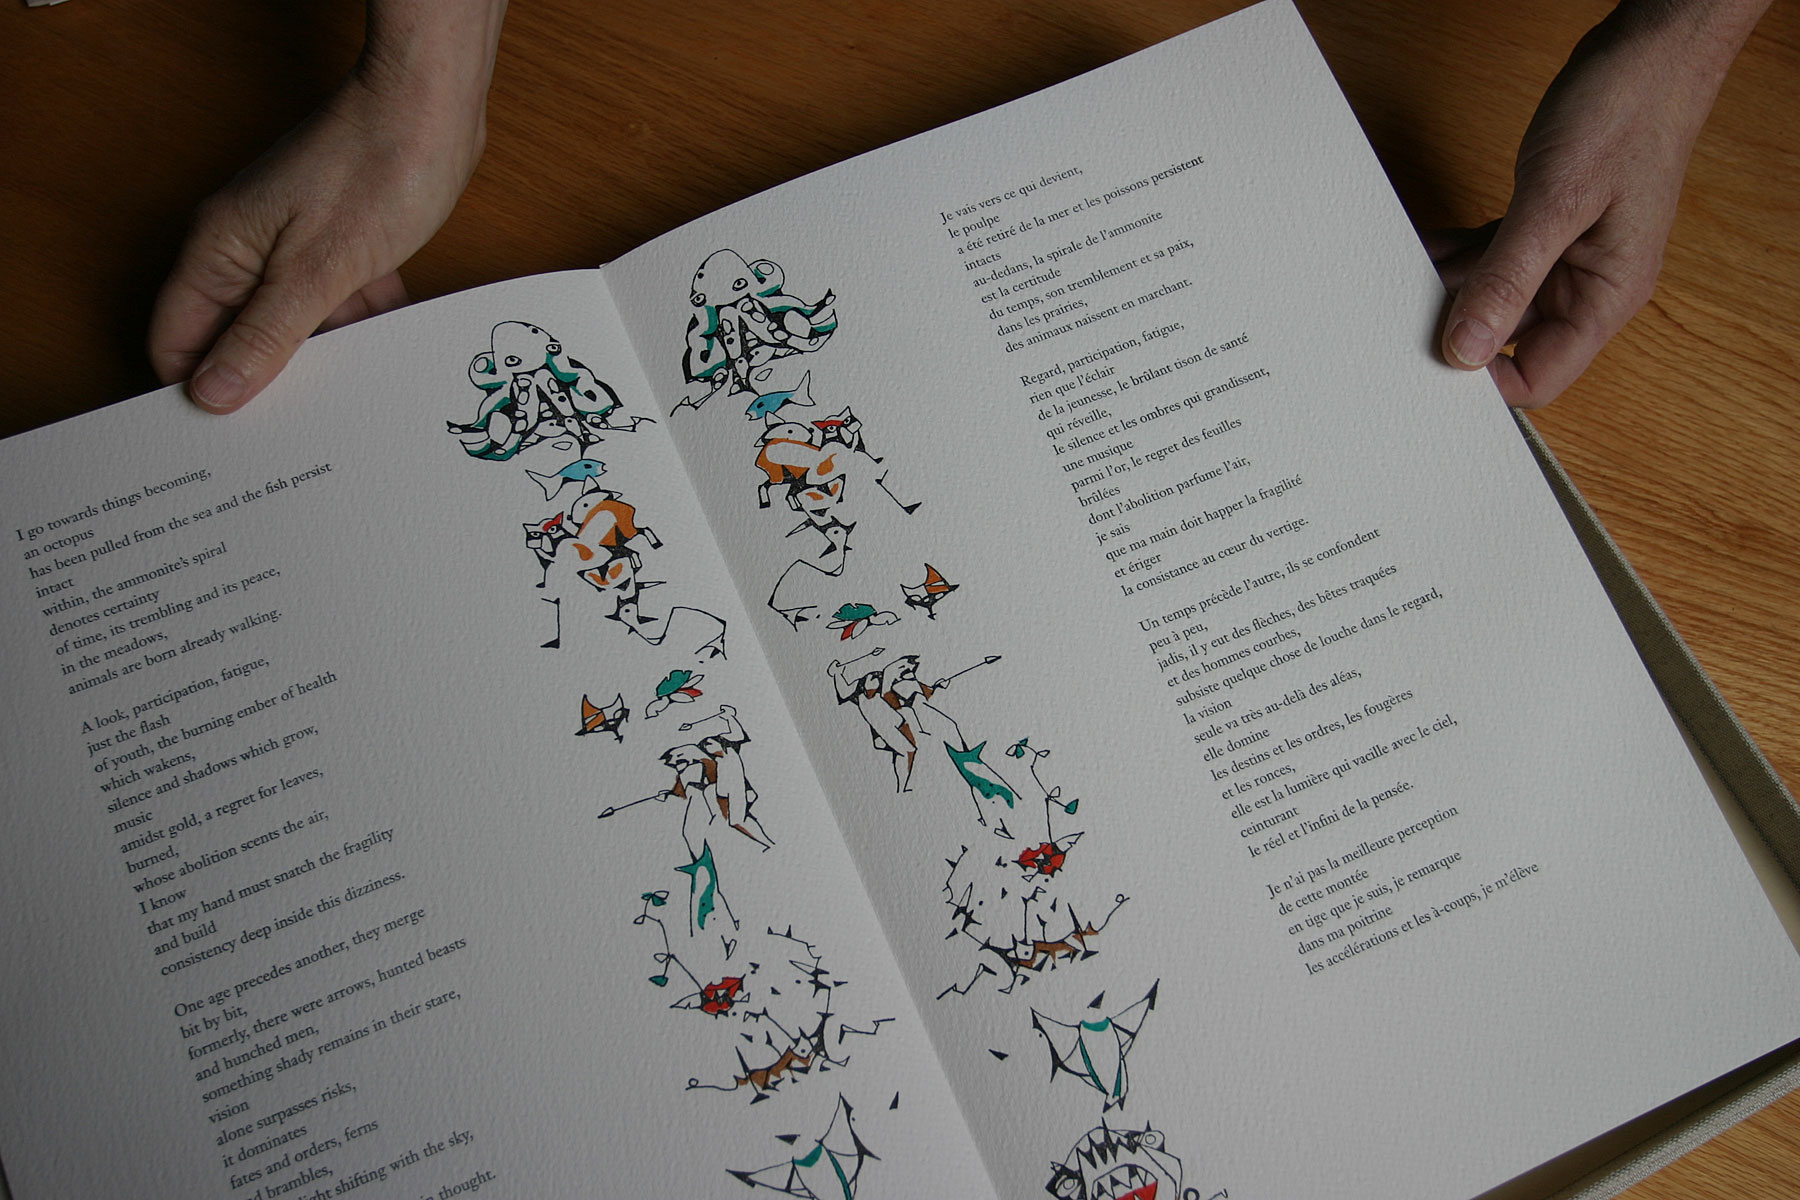 I go towards things becoming,
an octopus
has been pulled from the sea and the fish persist
intact
within, the ammonite's spiral
denotes certainty
of time, its trembling and its peace,
in the meadows,
animals are born already walking.
A look, participation, fatigue,
just the flash
of youth, the burning ember of health
which wakens,
silence and shadows which grow,
music
amidst gold, a regret for leaves,
burned,
whose abolition scents the air,
I know
that my hand must snatch the fragility
and build
consistency deep inside this dizziness.
One age precedes another, they merge
bit by bit,
formerly, there were arrows, hunted beasts
and hunched men,
something shady remains in their stare,
vision
alone surpasses risks,
it dominates
fates and orders, ferns
brambles,
shifting with the sky,
thought.
Je vais vers ce qui devient,
le poulpe
a été retiré de la mer et les poissons persistent
intacts
au-dedans, la spirale de l'ammonite
est la certitude
du temps, son tremblement et sa paix,
dans les prairies,
des animaux naissent en marchant.
Regard, participation, fatigue,
rien que l'éclair
de la jeunesse, le brûlant tison de santé
qui réveille,
le silence et les ombres qui grandissent,
une musique
parmi l'or, le regret des feuilles
brûlées
dont l'abolition parfume l'air,
je sais
que ma main doit happer la fragilité
et ériger
la consistance au cœur du vertige.
Un temps précède l'autre, ils se confondent
peu à peu,
jadis, il y eut des flèches, des bêtes traquées
et des hommes courbes,
subsiste quelque chose de louche dans le regard,
la vision
seule va très au-delà des aléas,
elle domine
les destins et les ordres, les fougères
et les ronces,
elle est la lumière qui vacille avec le ciel,
ceinturant
le réel et l'infini de la pensée.
Je n'ai pas la meilleure perception
de cette montée
en tige que je suis, je remarque
dans ma poitrine
les accélérations et les à-coups, je m'élève